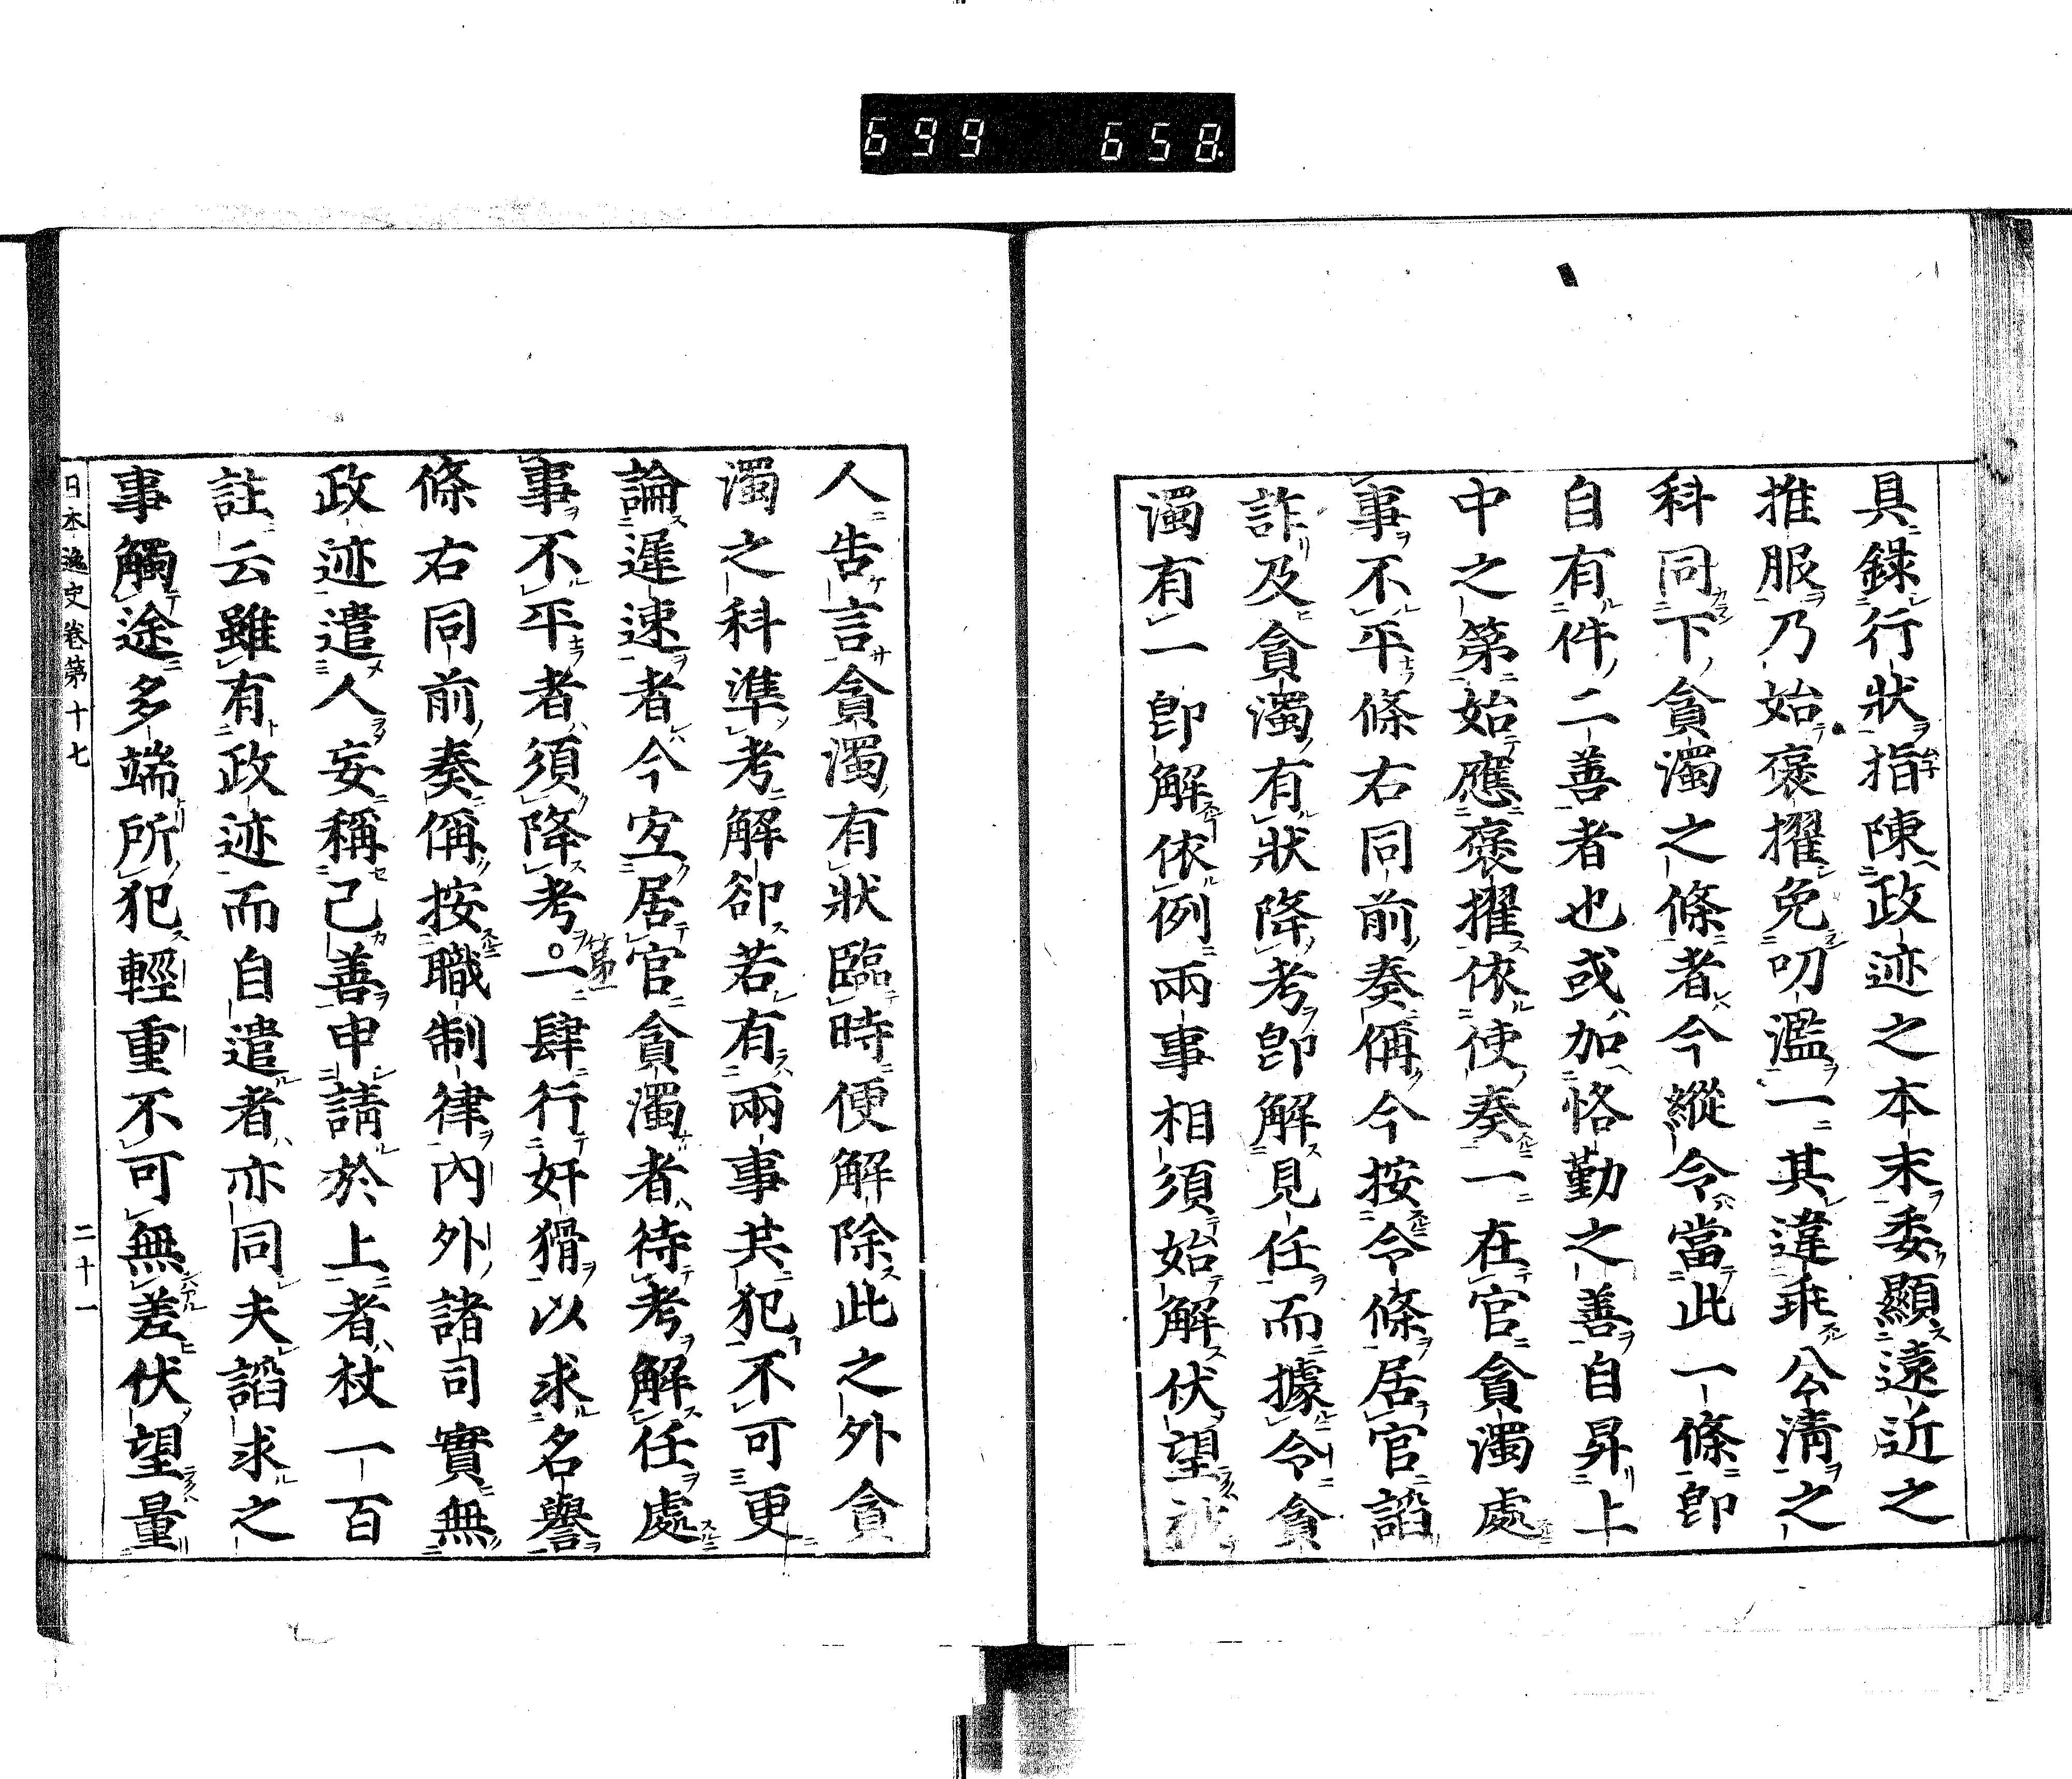 699 658
具錄行狀指陳政迹之本末委顯遠近之
推服乃始褒擢免叨濫一其違乖公淸之
科同下貪濁之條者今縱令當此一條卽
自有件二善者也或加恪勤之善自昇上
中之第始應褒擢依使奏一在官貪濁處
事不平條右同前奏偁今按令條居官諂
詐及貪濁有狀降考卽解見任而據令貪
濁有一卽解依例兩事相須始解伏望被
人告言貪濁有狀臨時便解除此之外貪
濁之科準考解卻若有兩事共犯不可更
論遲速者今㝎居官貪濁者待考解任處
事不平者須降考第一一肆行奸猾以求名譽
條右同前奏偁按職制律內外諸司實無
政迹遣人妄稱己善申請於上者杖一百
註云雖有政迹而自遣者亦同夫諂求之
事觸途多端所犯輕重不可無差伏望量
日本逸史卷第十七 二十一